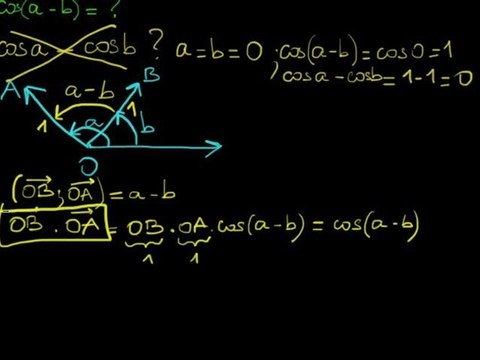 cos(a-b) = ?
cos a - cos b ? a = b = 0 ; cos(a-b) = cos 0 = 1
cos a - cos b = 1-1 = 0
A a-b B
1 a 1 b
O
(OB⃗ ; OA⃗) = a-b
OB⃗ . OA⃗ = OB . OA . cos(a-b) = cos(a-b)
1 1